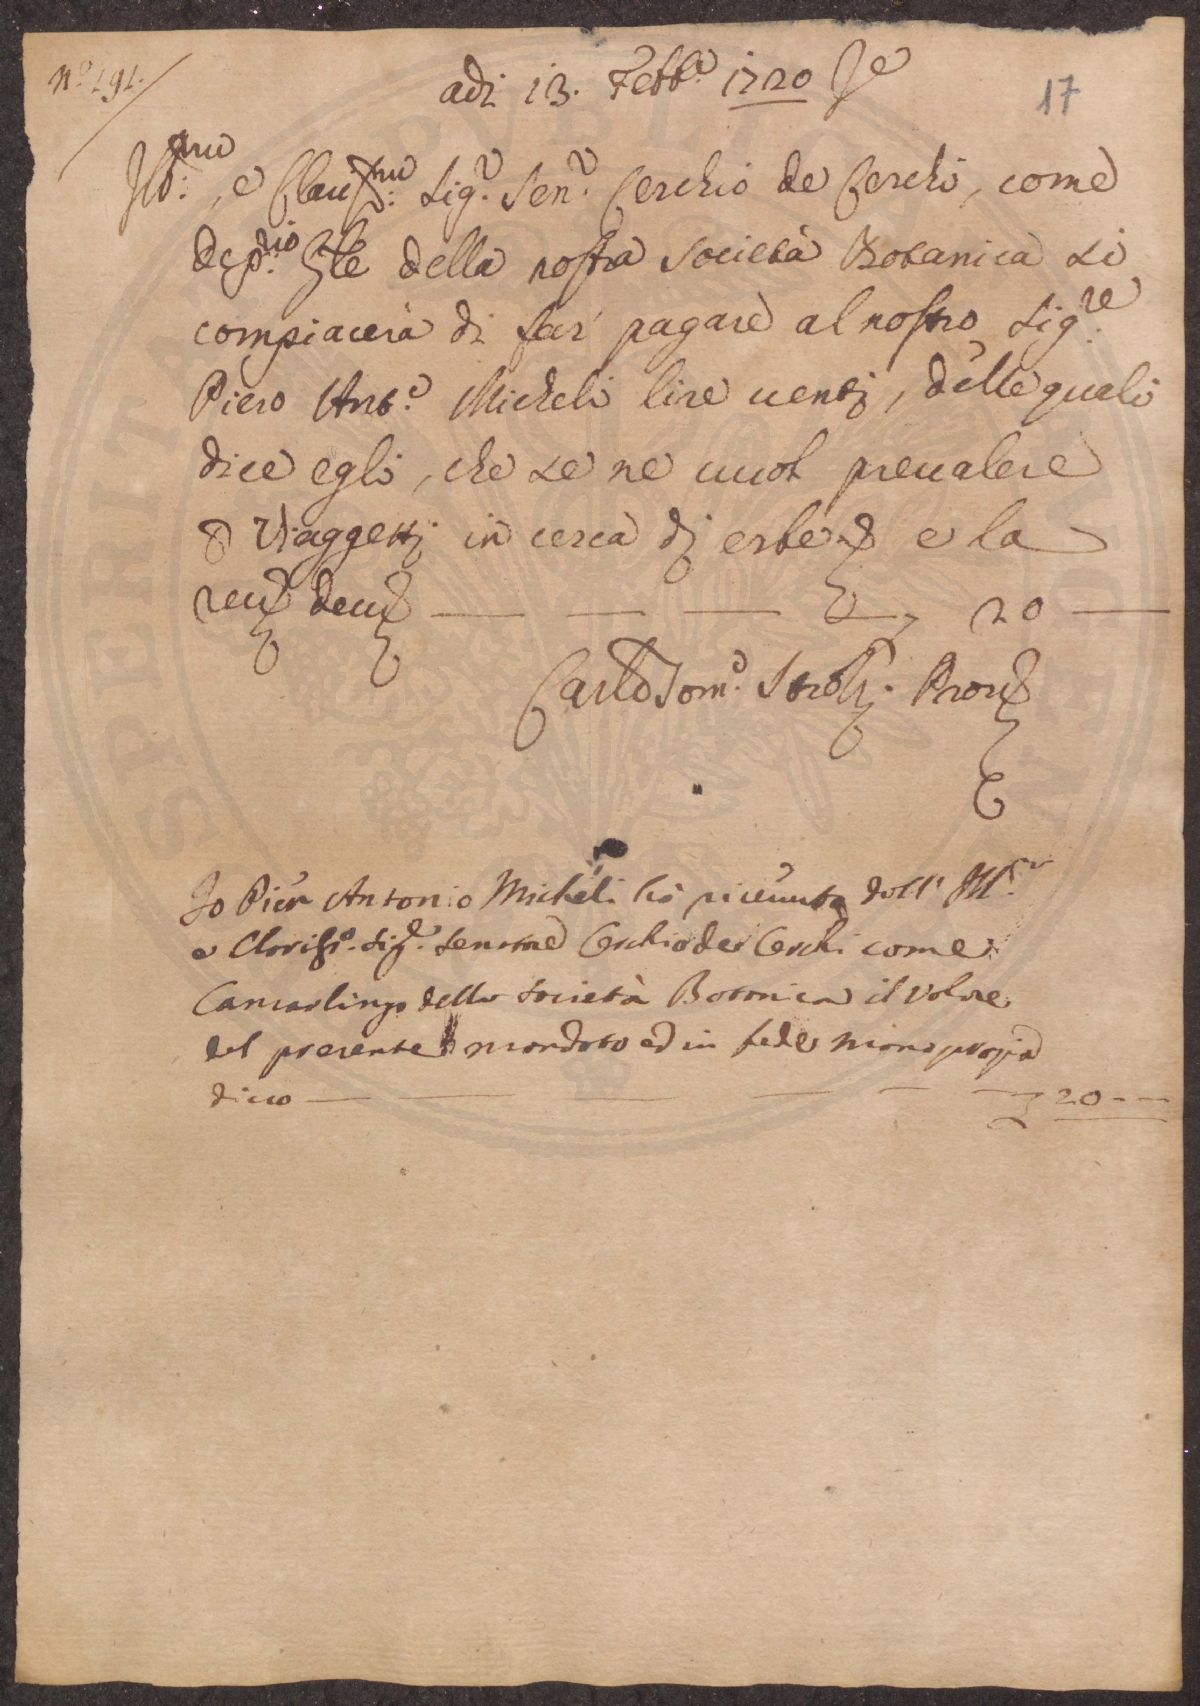 N.º 191.
adi 13. Febb.º 1720
17
Ill:mo, e Clariss:mo Sig.r Sen.r Cerchio de Cerchi, come
dep:rio gle della nostra Società Botanica si
compiacerà di far pagare al nostro Sig:re
Piero Ant.º Micheli lire venti, delle quali
dice egli, che se ne vuol prevalere
p Viaggetti in cerca di erbe e la
rev. devs. — — — — 20 —
Carlo Tom.º Strozi. Prov.
Io Pier Antonio Micheli ho ricevuto dall' Ill.mo
e Clariss.º Sig.re Senatore Cerchio de Cerchi come
Camarlingo della Società Botanica il valore
del presente mandato ed in fede mano propria
dico — — — — — — 20 — —
SPERITAS PVBLICA